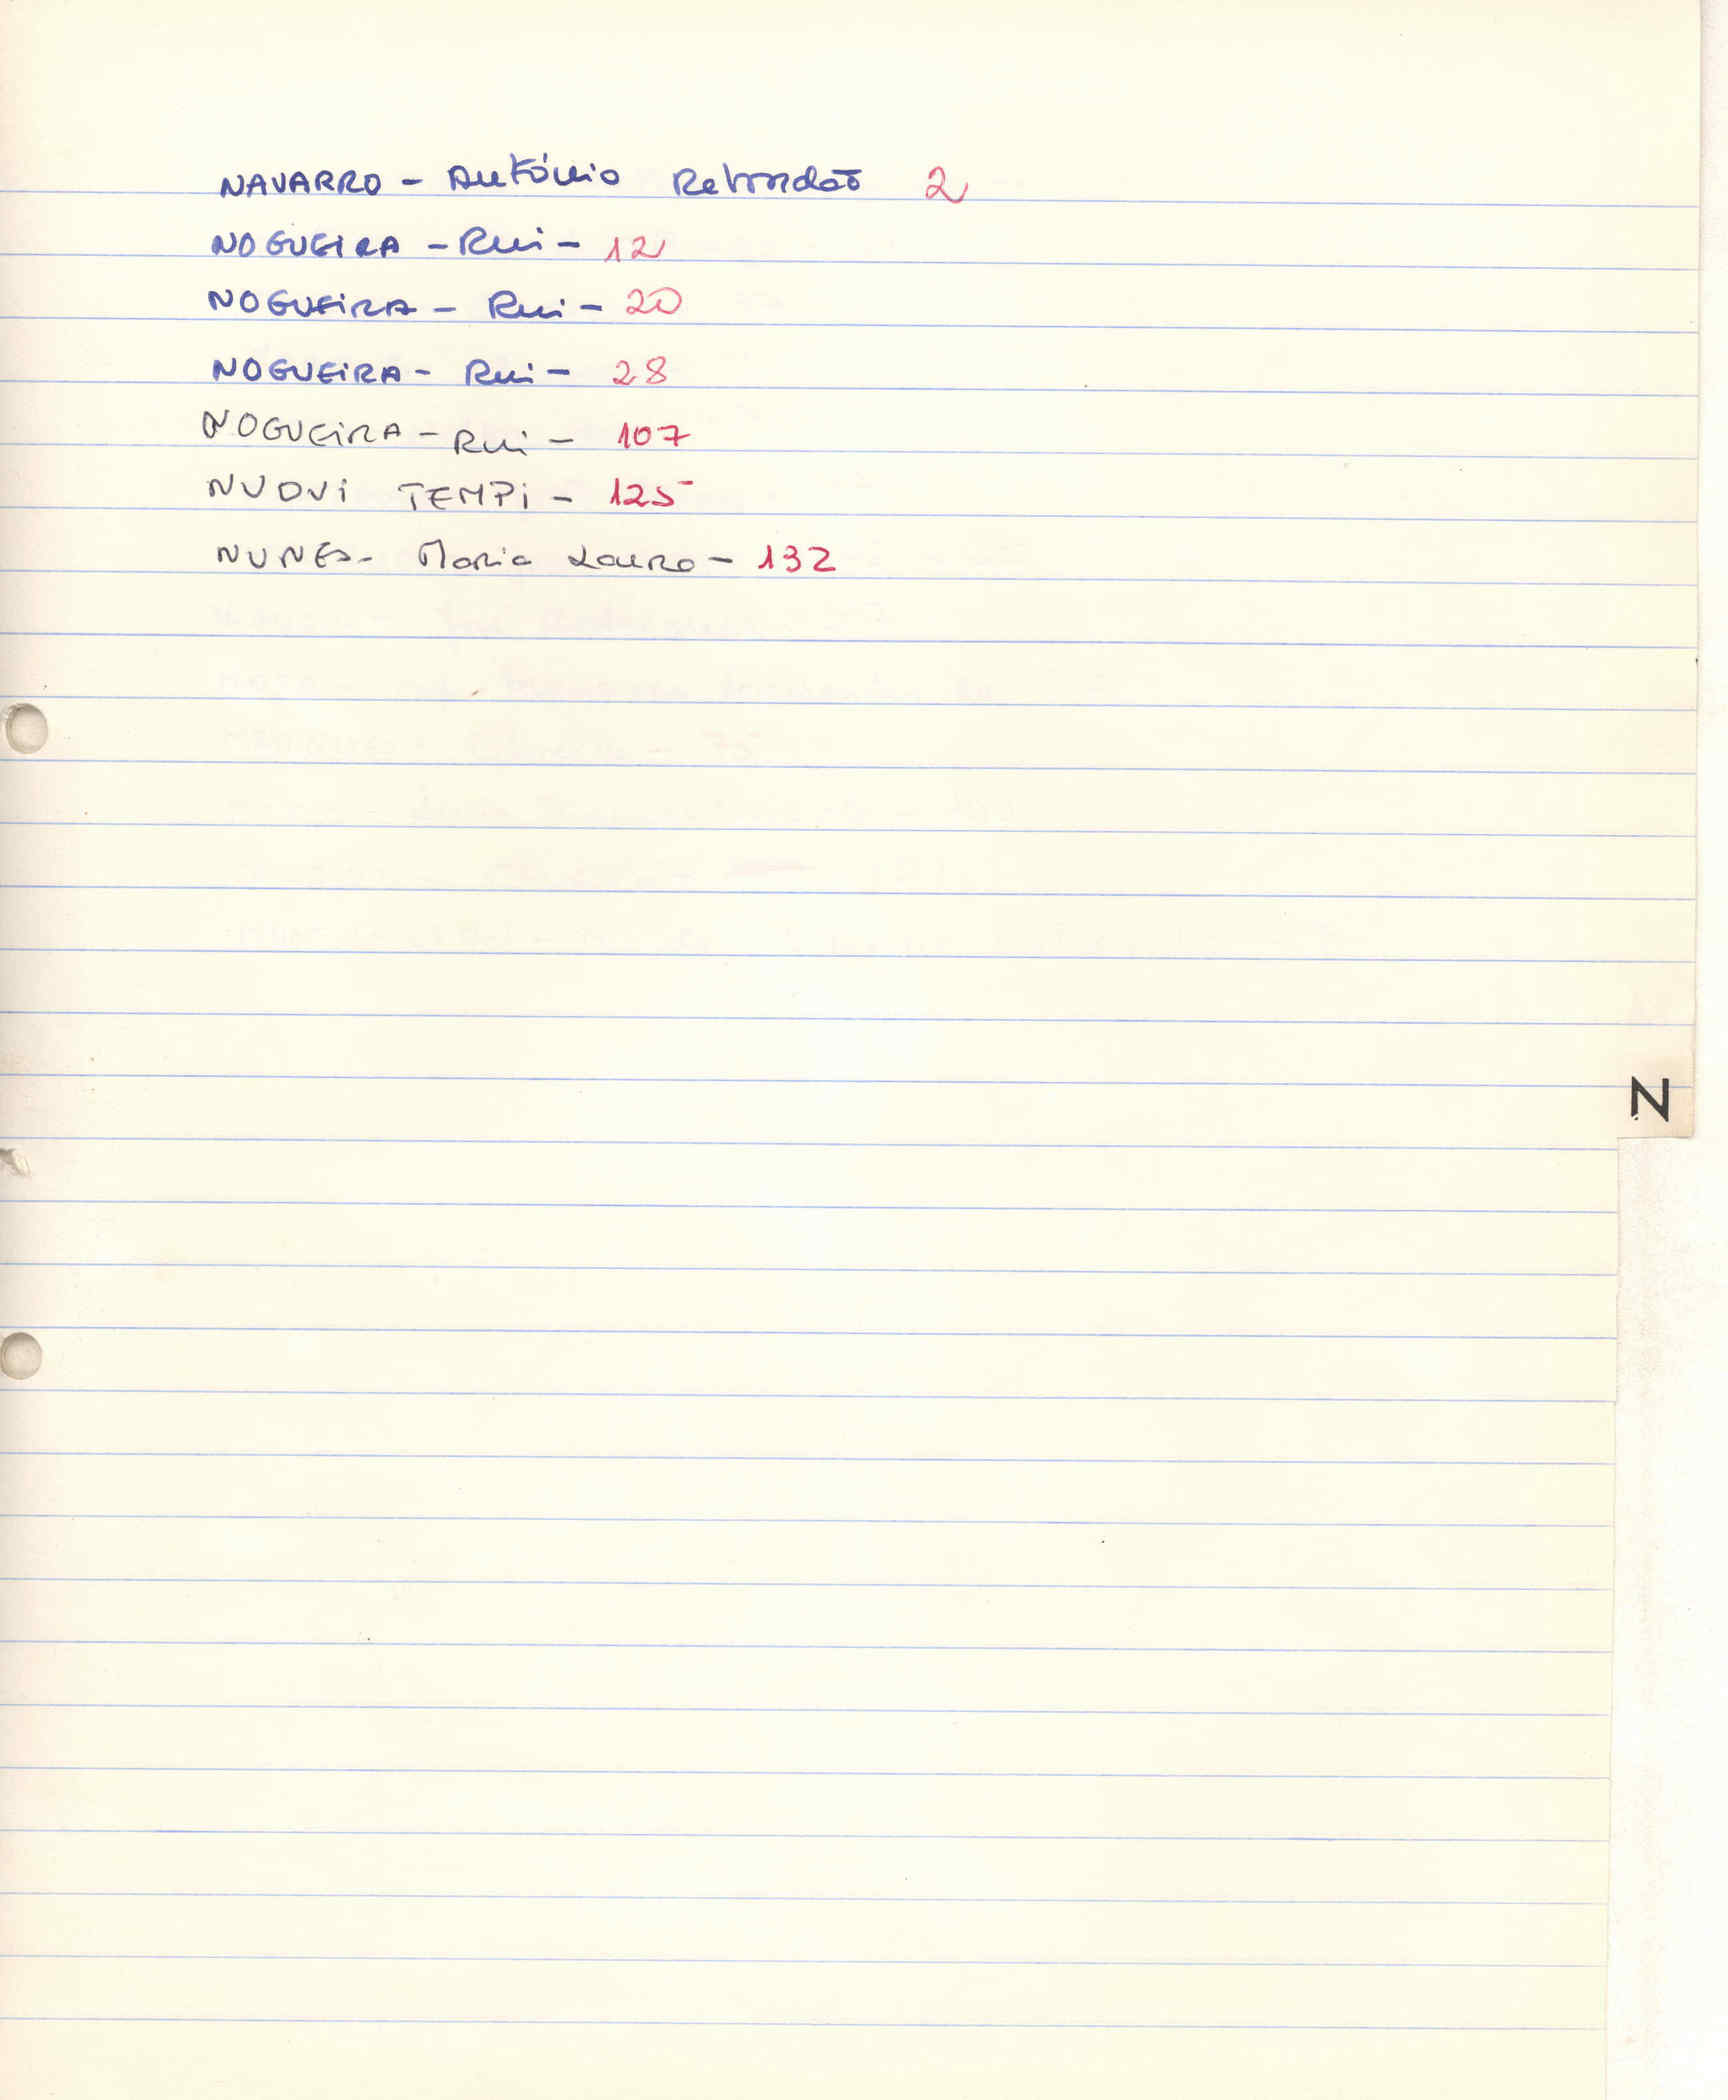 NAVARRO - António Rebordão 2
NOGUEIRA - Rui - 12
NOGUEIRA - Rui - 20
NOGUEIRA - Rui - 28
NOGUEIRA - Rui - 107
NUOVI TEMPI - 125
NUNES - Maria Laura - 132
N